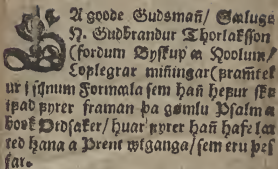 A goode Gudsmañ/ Sæluge
H. Gudbrandur Thorlaksson
(fordum Byskup a Hoolum/
Loflegrar miñingar) framset
ur i sijnum Formaala sem hañ hefur skr
ipad fyrer framan þa gømlu Psalma
book Ordsaker/ huar fyrer hañ hafe lat
ed hana a Prent wtganga/ sem eru þes
sar.